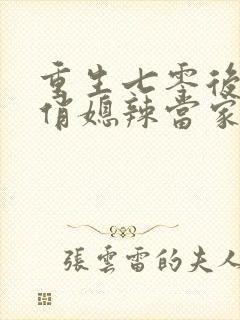 重生七零後
俏媳辣當家
張雲雷的夫人